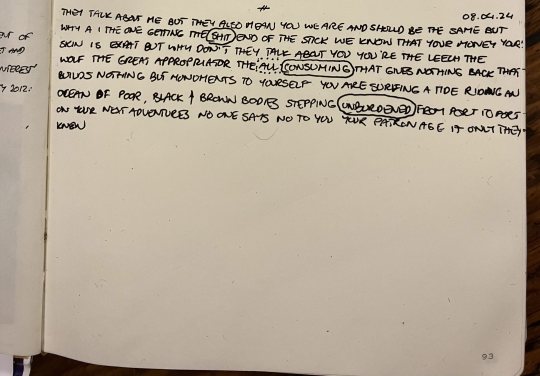 #
08.04.24
THEY TALK ABOUT ME BUT THEY ALSO MEAN YOU WE ARE AND SHOULD BE THE SAME BUT
WHY A I THE ONE GETTING THE SHIT END OF THE STICK WE KNOW THAT YOUR MONEY YOUR
SKIN IS EXPAT BUT WHY DON'T THEY TALK ABOUT YOU YOU'RE THE LEECH THE
WOLF THE GREAT APPROPRIATOR THE ALL CONSUMING THAT GIVES NOTHING BACK THAT
BUILDS NOTHING BUT MONUMENTS TO YOURSELF YOU ARE SURFING A TIDE RIDING AN
OCEAN OF POOR, BLACK & BROWN BODIES STEPPING UNBURDENED FROM PORT TO PORT
ON YOUR NEXT ADVENTURES NO ONE SAYS NO TO YOU YOUR PATRONAGE IF ONLY THEY
KNEW
ENT OF
ET AND
NTEREST
Y 2012:
93